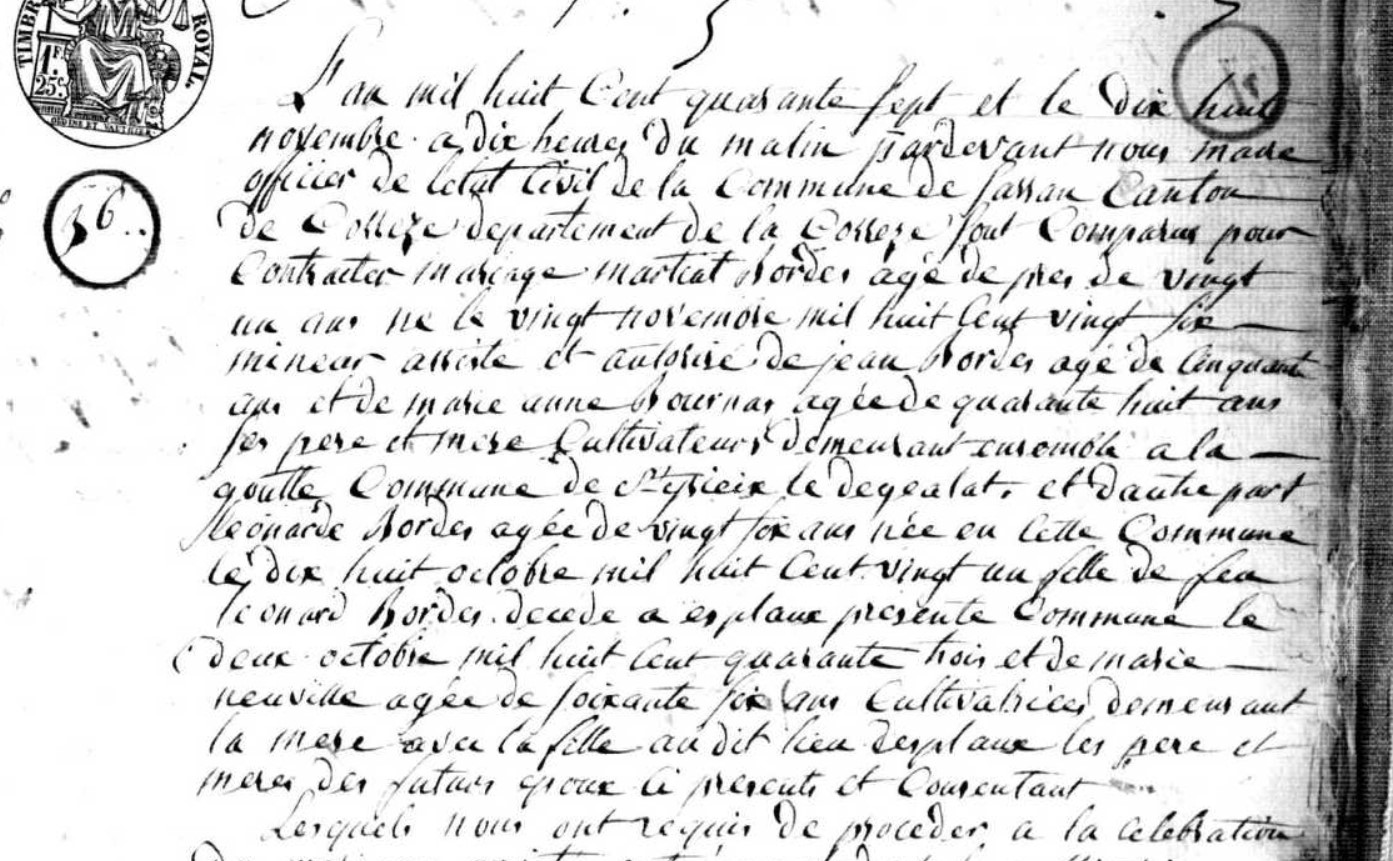 TIMBRE ROYAL.
1 F. 25 c.
36..
L'an mil huit Cent quarante sept et le dix huit
novembre a dix heures du matin pardevant nous maire
officier de letat Civil de la Commune de sarran Canton
de Correze departement de la Correze sont Comparus pour
Contracter mariage martial Bordes agé de pres de vingt
un ans né le vingt novembre mil huit Cent vingt six
mineur assisté et autorisé de jean Bordes agé de Cinquante
ans et de marie anne Bournas agée de quarante huit ans
ses pere et mere Cultivateurs demeurant ensemble a la
goutte Commune de St yrieix le degealat. et dautre part
leonarde Bordes agée de vingt six ans née en Cette Commune
le dix huit octobre mil huit Cent vingt un fille de feu
leonard Bordes decede a esplaux presente Commune le
deux octobre mil huit Cent quarante trois et de marie
neuville agée de soixante six ans Cultivatrices demeurant
la mere avec la fille au dit lieu desplaux les pere et
meres des futurs epoux Ci presents et Consentant
Lesquels nous ont requis de proceder a la Celebration